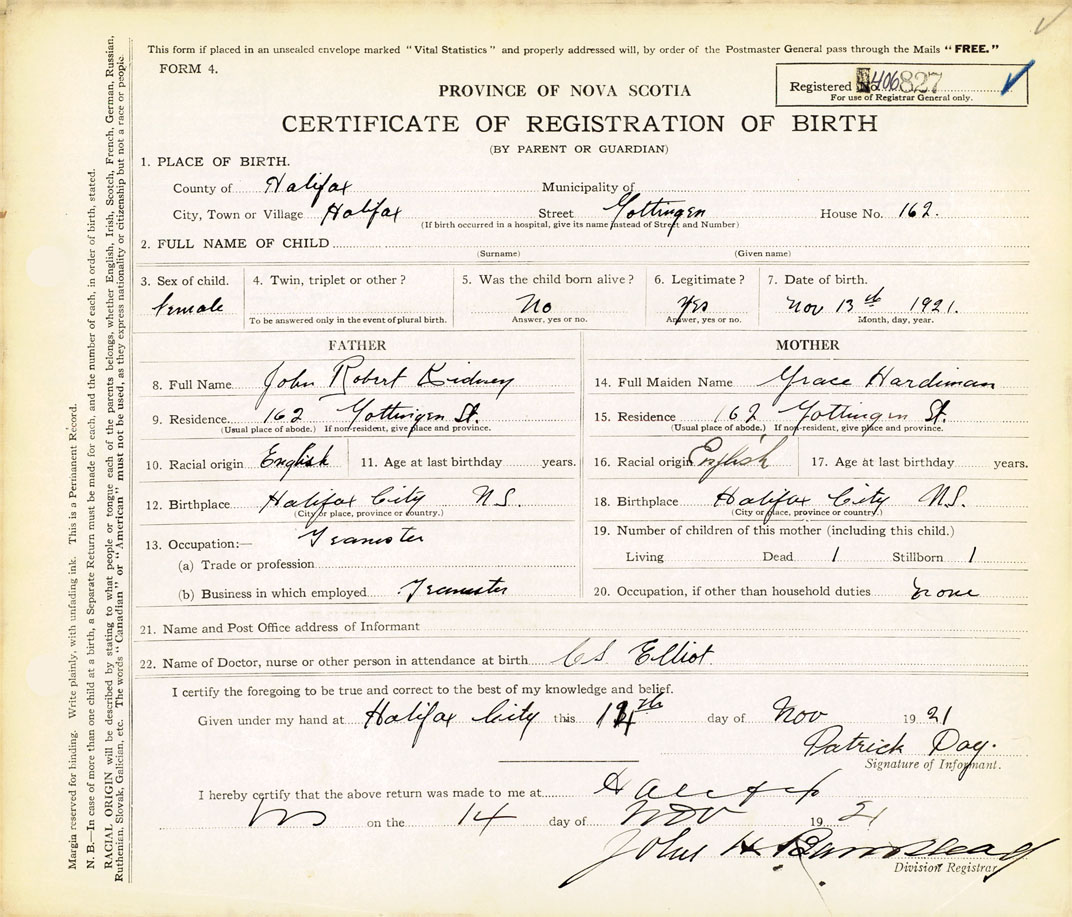 This form if placed in an unsealed envelope marked "Vital Statistics" and properly addressed will, by order of the Postmaster General pass through the Mails "FREE."
FORM 4.
Registered No. 406827
For use of Registrar General only.
PROVINCE OF NOVA SCOTIA
CERTIFICATE OF REGISTRATION OF BIRTH
(BY PARENT OR GUARDIAN)
1. PLACE OF BIRTH.
County of Halifax Municipality of
City, Town or Village Halifax Street Gottingen House No. 162.
(If birth occurred in a hospital, give its name instead of Street and Number)
2. FULL NAME OF CHILD
(Surname) (Given name)
3. Sex of child. female
4. Twin, triplet or other?
To be answered only in the event of plural birth.
5. Was the child born alive? No
Answer, yes or no.
6. Legitimate? Yes
Answer, yes or no.
7. Date of birth. Nov 13th 1921.
Month, day, year.
FATHER
8. Full Name John Robert Kidney
9. Residence 162 Gottingen St.
(Usual place of abode.) If non-resident, give place and province.
10. Racial origin English 11. Age at last birthday years.
12. Birthplace Halifax City N.S.
(City or place, province or country.)
13. Occupation:— Teamster
(a) Trade or profession
(b) Business in which employed Teamster
MOTHER
14. Full Maiden Name Grace Hardiman
15. Residence 162 Gottingen St.
(Usual place of abode.) If non-resident, give place and province.
16. Racial origin English 17. Age at last birthday years.
18. Birthplace Halifax City N.S.
(City or place, province or country.)
19. Number of children of this mother (including this child.)
Living Dead 1 Stillborn 1
20. Occupation, if other than household duties none
21. Name and Post Office address of Informant
22. Name of Doctor, nurse or other person in attendance at birth Elliot
I certify the foregoing to be true and correct to the best of my knowledge and belief.
Given under my hand at Halifax City this 14th day of Nov 1921
Patrick Day.
Signature of Informant.
I hereby certify that the above return was made to me at Halifax
NS on the 14 day of Nov 1921
John H Barnstead
Division Registrar
Margin reserved for binding. Write plainly, with unfading ink. This is a Permanent Record.
N. B.—In case of more than one child at a birth, a Separate Return must be made for each, and the number of each, in order of birth, stated.
RACIAL ORIGIN will be described by stating to what people or tongue each of the parents belongs, whether English, Irish, Scotch, French, German, Russian,
Ruthenian, Slovak, Galician, etc. The words "Canadian" or "American" must not be used, as they express nationality or citizenship but not a race or people.